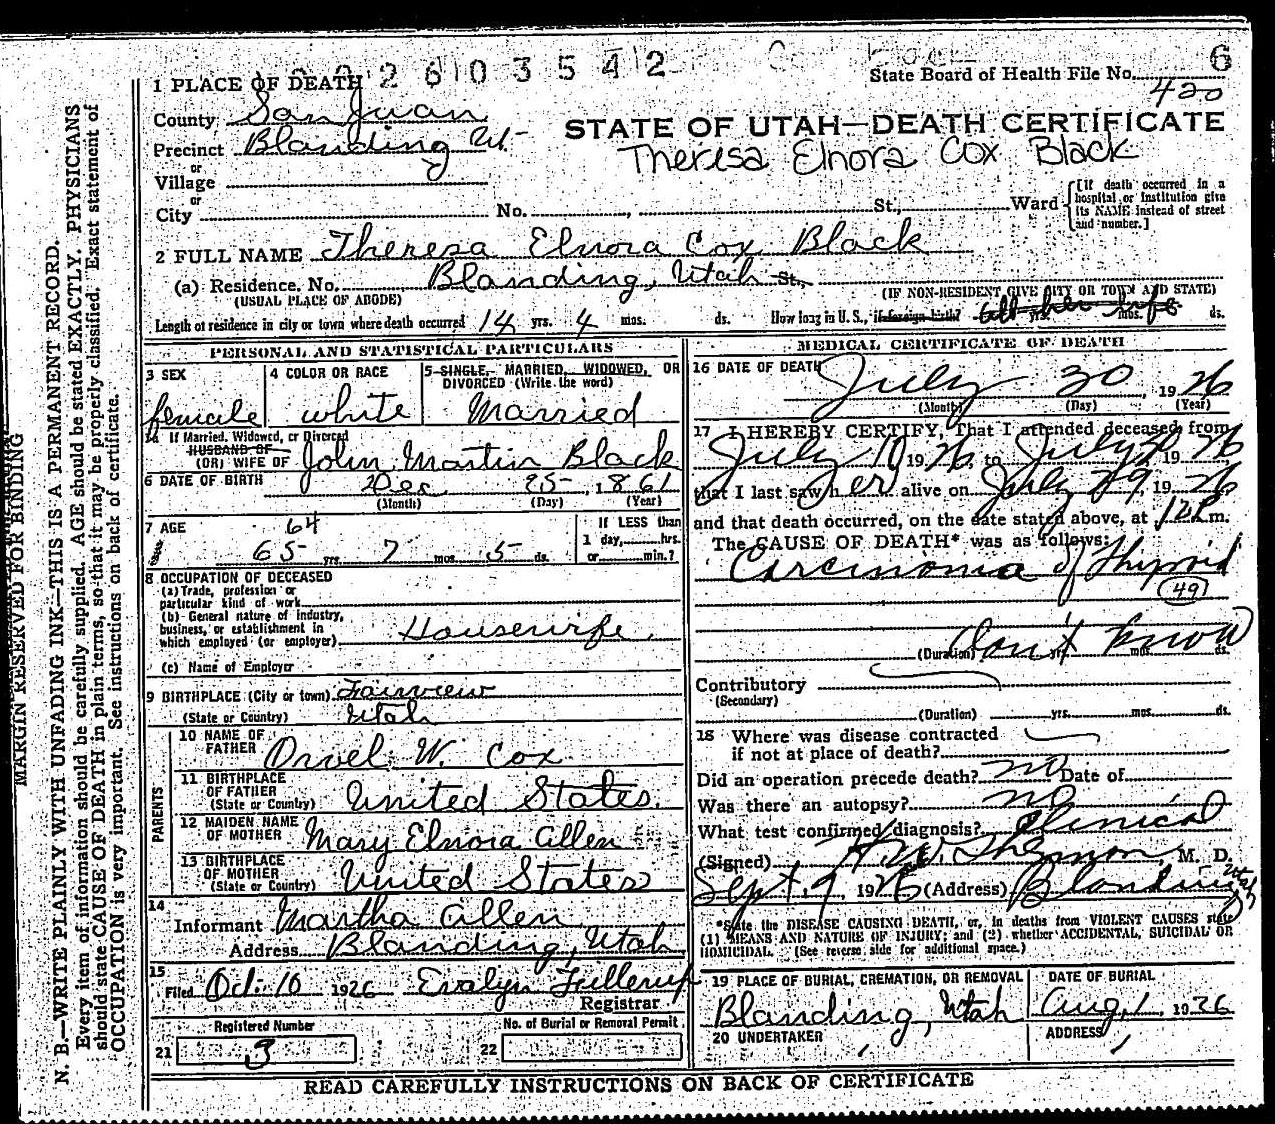 2 6 0 3 5 4 2
State Board of Health File No. 6
420
1 PLACE OF DEATH
County San Juan
STATE OF UTAH—DEATH CERTIFICATE
Precinct Blanding Ut.
Theresa Elnora Cox Black
or
Village
or
City No. , St., Ward
[If death occurred in a hospital or institution give its NAME instead of street and number.]
2 FULL NAME Theresa Elnora Cox Black
(a) Residence. No. Blanding, Utah St.,
(USUAL PLACE OF ABODE) (IF NON-RESIDENT GIVE CITY OR TOWN AND STATE)
Length of residence in city or town where death occurred 14 yrs. 4 mos. ds. How long in U. S., if foreign birth? all her life mos. ds.
PERSONAL AND STATISTICAL PARTICULARS
3 SEX
female
4 COLOR OR RACE
white
5 SINGLE, MARRIED, WIDOWED, OR
DIVORCED (Write the word)
Married
If Married, Widowed, or Divorced
HUSBAND OF
(OR) WIFE OF John Martin Black
6 DATE OF BIRTH Dec 25 1861
(Month) (Day) (Year)
7 AGE 64
65 yrs. 7 mos. 5 ds.
If LESS than
1 day, hrs.
or min.?
8 OCCUPATION OF DECEASED
(a) Trade, profession or
particular kind of work
(b) General nature of industry,
business, or establishment in
which employed (or employer) Housewife
(c) Name of Employer
9 BIRTHPLACE (City or town) Fairview
(State or Country) Utah
PARENTS
10 NAME OF
FATHER Orvel W. Cox
11 BIRTHPLACE
OF FATHER
(State or Country) United States.
12 MAIDEN NAME
OF MOTHER Mary Elnora Allen
13 BIRTHPLACE
OF MOTHER
(State or Country) United States
14
Informant Martha Allen
Address Blanding, Utah
15
Filed Oct. 10 1926 Evalyn Fullerup
Registrar
Registered Number
21 3
No. of Burial or Removal Permit
22
MEDICAL CERTIFICATE OF DEATH
16 DATE OF DEATH July 30 1926
(Month) (Day) (Year)
17 I HEREBY CERTIFY, That I attended deceased from
July 10 1926, to July 1926
that I last saw her alive on July 29, 1926
and that death occurred, on the date stated above, at 12 P.m.
The CAUSE OF DEATH* was as follows:
Carcinoma of Thyroid
49
(Duration) don't know yrs. mos. ds.
Contributory
(Secondary)
(Duration) yrs. mos. ds.
18 Where was disease contracted
if not at place of death?
Did an operation precede death? no Date of
Was there an autopsy? no
What test confirmed diagnosis? Clinical
(Signed) M. D.
Sept. 9 1926 (Address) Blanding Utah
*State the DISEASE CAUSING DEATH, or, in deaths from VIOLENT CAUSES state
(1) MEANS AND NATURE OF INJURY; and (2) whether ACCIDENTAL, SUICIDAL OR
HOMICIDAL. (See reverse side for additional space.)
19 PLACE OF BURIAL, CREMATION, OR REMOVAL
Blanding, Utah
DATE OF BURIAL
Aug. 1 1926
20 UNDERTAKER
ADDRESS
READ CAREFULLY INSTRUCTIONS ON BACK OF CERTIFICATE
MARGIN RESERVED FOR BINDING
N. B.—WRITE PLAINLY WITH UNFADING INK—THIS IS A PERMANENT RECORD.
Every item of information should be carefully supplied. AGE should be stated EXACTLY. PHYSICIANS
should state CAUSE OF DEATH in plain terms, so that it may be properly classified. Exact statement of
OCCUPATION is very important. See instructions on back of certificate.